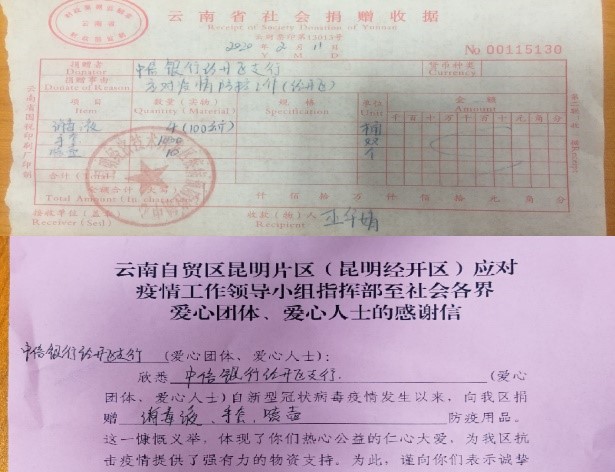 云南省社会捐赠收据
Receipt of Society Donation of Yunnan
2020 年 2 月 11 日
Y M D
No 00115130
捐赠者 中信银行经开区支行 货币种类
Donator Currency
捐赠事由 应对疫情防控工作(经开区)
Donate of Reason
项目 数量(实物) 规格 单位 金额
Item Quantity (Material) Specification Unit Amount
千 百 十 万 千 百 十 元 角 分
消毒液 4(100斤) 桶
手套 双
喷壶 10 个
合计(Total)
金额合计(大写) 仟 佰 拾 万 仟 佰 拾 元 角 分
Total Amount (In character)
接收单位(盖章) 收款(物)人
Receiver (Seil) Recipient
云南省国税印刷厂印刷
云南自贸区昆明片区(昆明经开区)应对
疫情工作领导小组指挥部至社会各界
爱心团体、爱心人士的感谢信
中信银行经开区支行 (爱心团体、爱心人士):
欣悉 中信银行经开区支行. (爱心
团体、爱心人士)自新型冠状病毒疫情发生以来,向我区捐
赠 消毒液、手套、喷壶 防疫用品。
这一慷慨义举,体现了你们热心公益的仁心大爱,为我区抗
击疫情提供了强有力的物资支持。为此,谨向你们表示诚挚